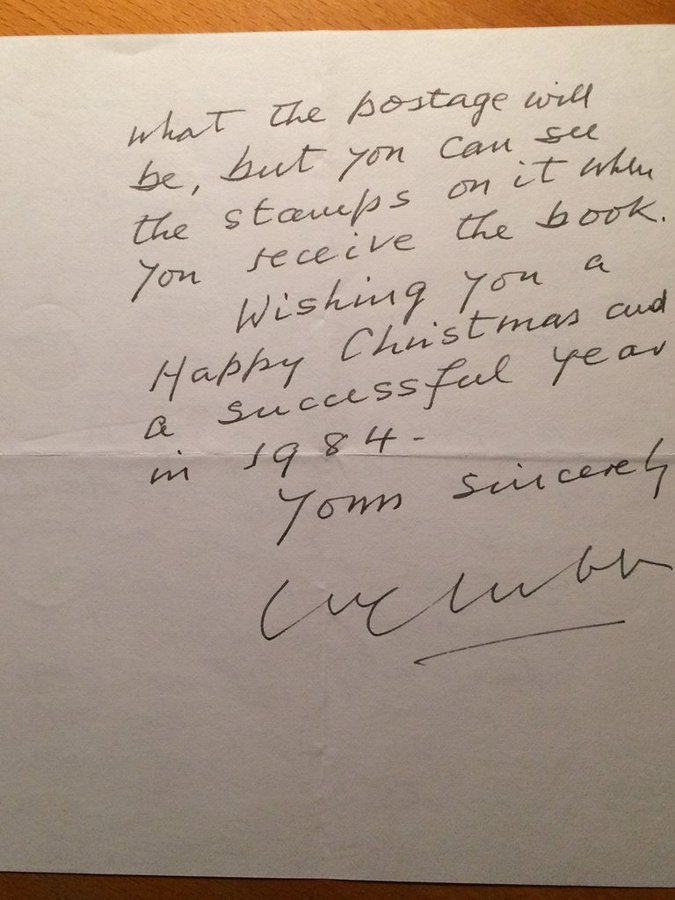 what the postage will
be, but you can see
the stamps on it when
you receive the book.
Wishing you a
Happy Christmas and
a successful year
in 1984-
Yours sincerely